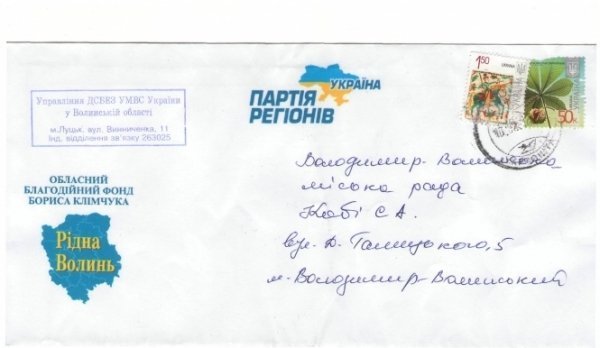 Управління ДСБЕЗ УМВС України
у Волинській області
м.Луцьк, вул. Винниченка, 11
Інд. відділення зв'язку 263025
УКРАЇНА
ПАРТІЯ
РЕГІОНІВ
1,50
50к
ОБЛАСНИЙ
БЛАГОДІЙНИЙ ФОНД
БОРИСА КЛІМЧУКА
Рідна
Волинь
Володимир-Волинська
міська рада
Кобі С А.
вул. Д. Галицького, 5
м. Володимир-Волинський